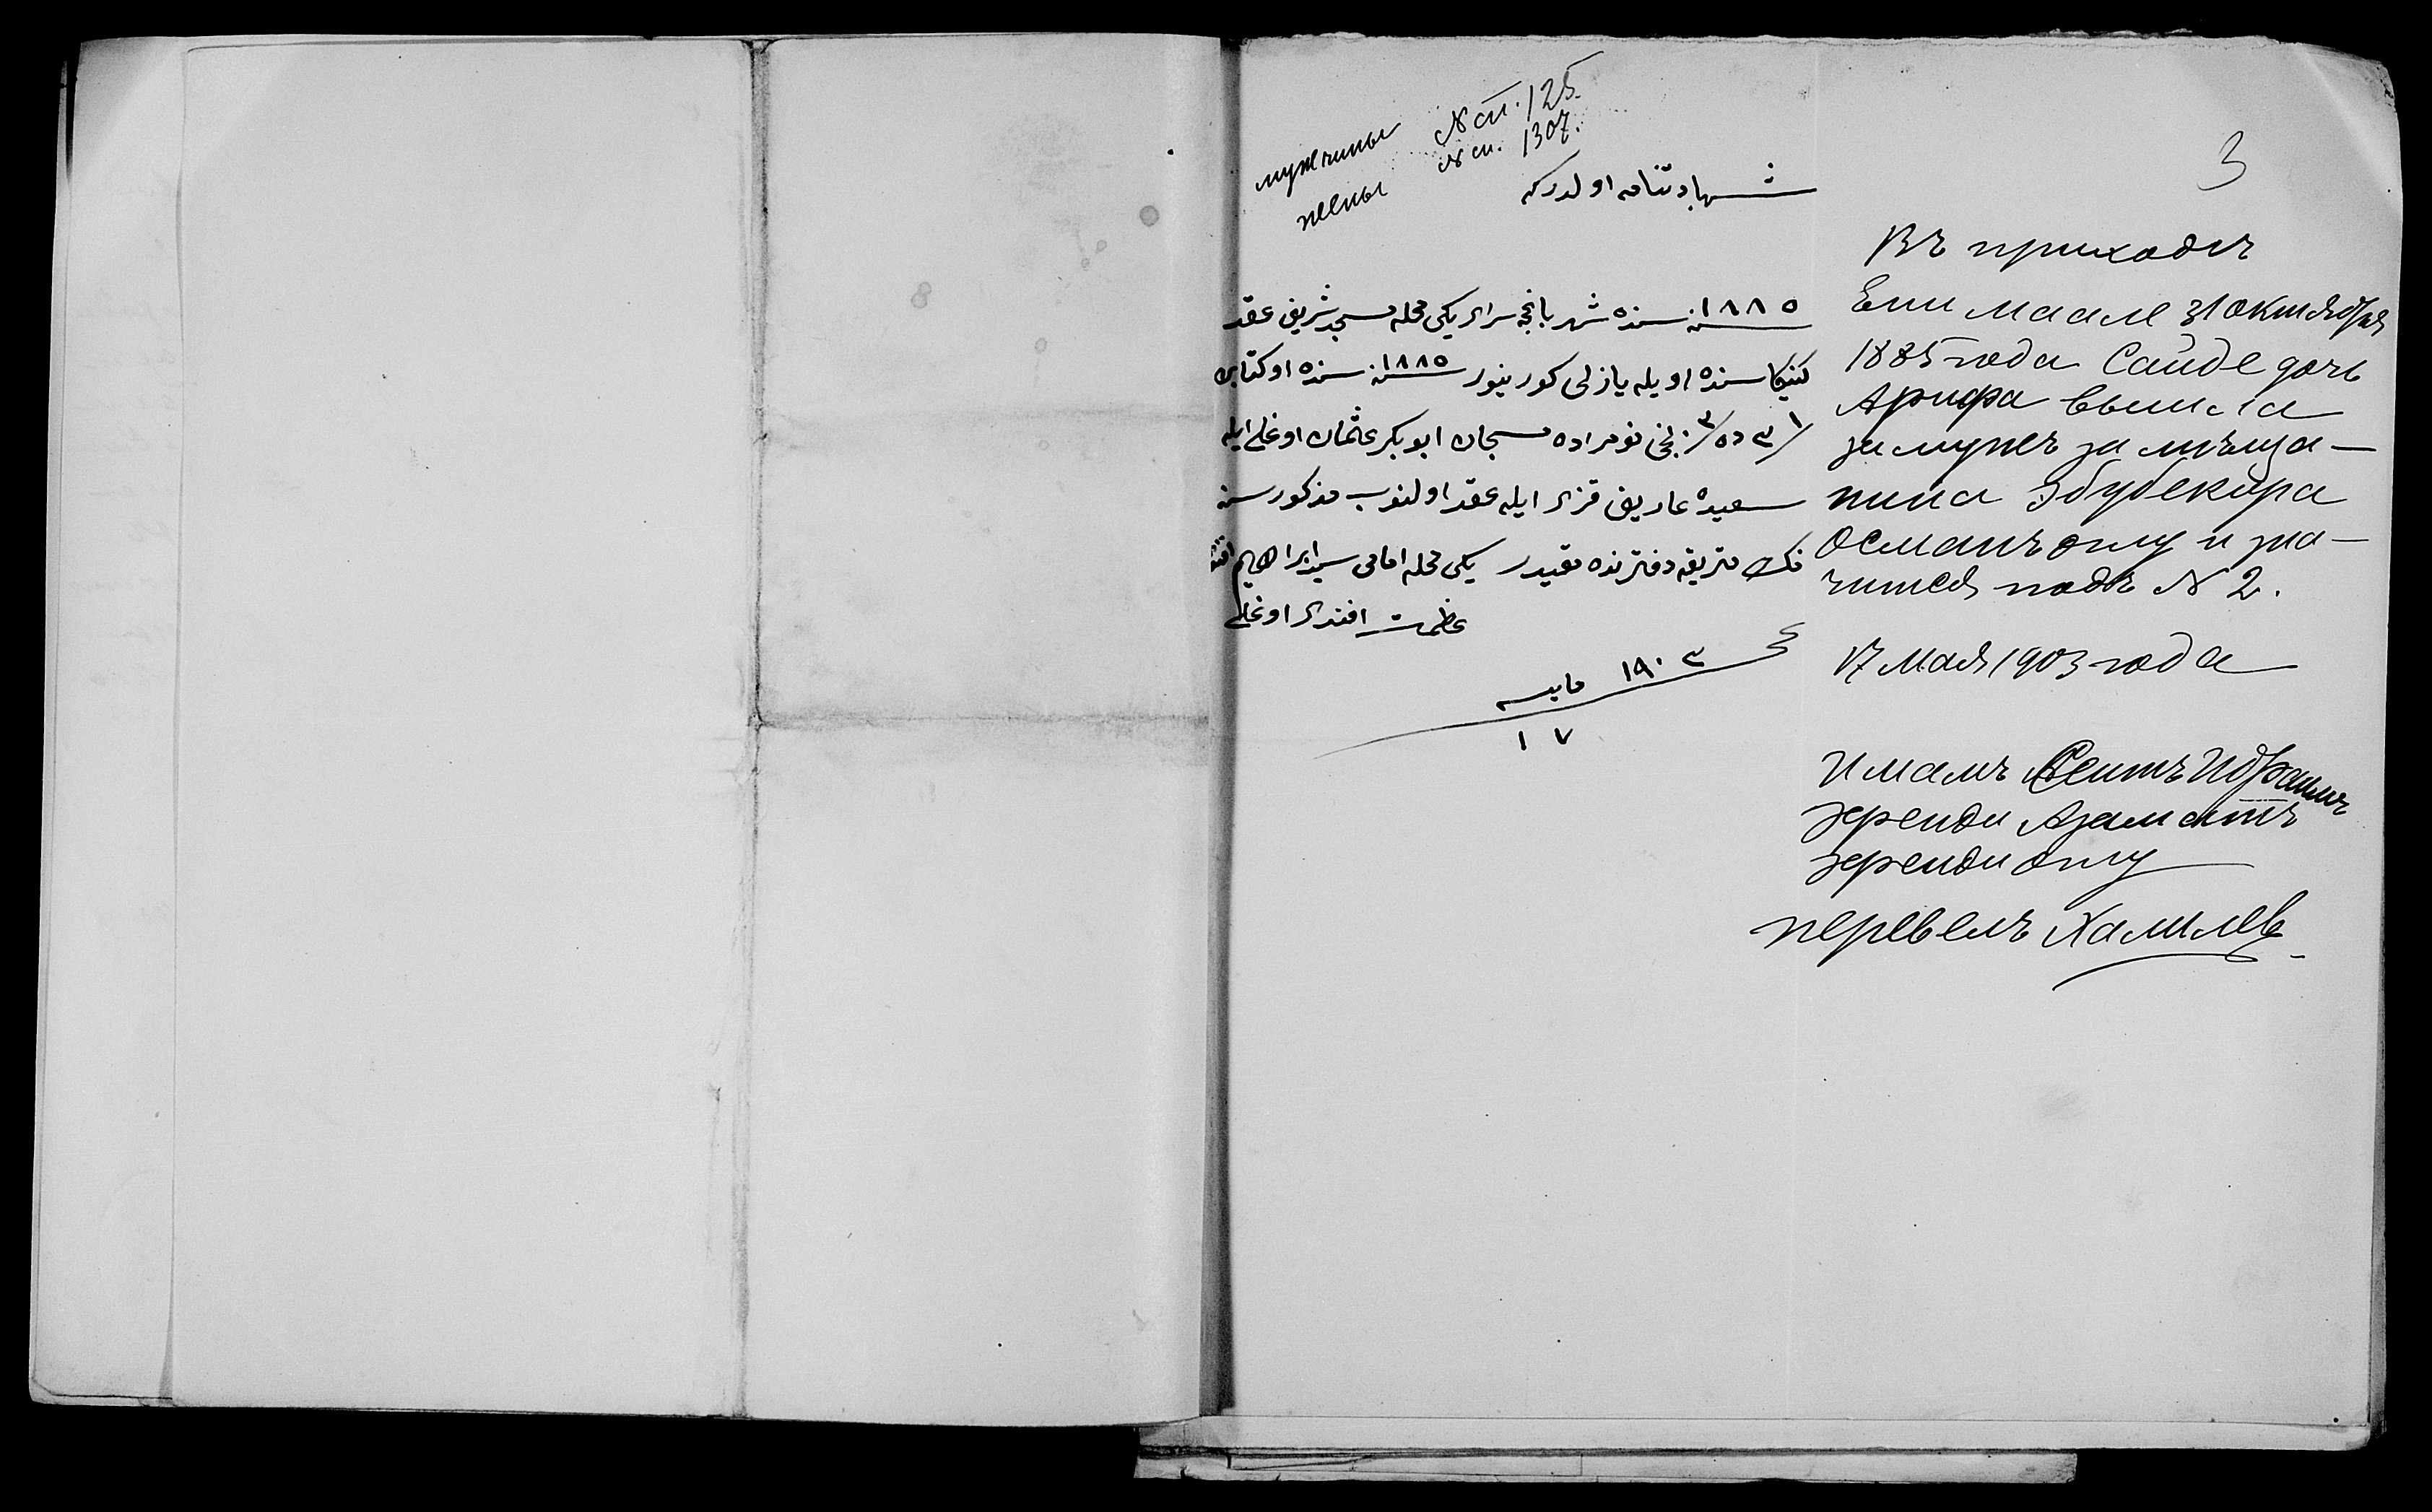 мужчины N сп. 125.
жены N сп. 1307.
شهادتنامه اولدركه
١٨٨٥ نسنه سنده شهر باغچه سراى يكى محله مسجد شريفى عقد
كنيكاسنده اويله يازلى كورينور ١٨٨٥ نسنه سنده اوكتابر
٣١ ده ٣ نجى نومراده مسجان ابوبكر عثمان اوغلى ايله
سعيده عاريف قزى ايله عقد اولنوب مذكور سنه
نك متريقه دفترنده مقيددر يكى محله امامى سيد ابراهيم افندى
عظمت افندى اوغلى
١٩٠٣ مايسه
١٧
3
Въ приходѣ
Ени Маале 31 октября
1885 года Саиде дочь
Арифа вышла
замужъ за мѣща-
нина Эбубекира
Османъ оглу и зна-
чится подъ N 2.
17 Мая 1903 года
Имамъ Сеитъ Ибраимъ
эфенди Азаматъ
эфенди оглу
перевелъ Халилев